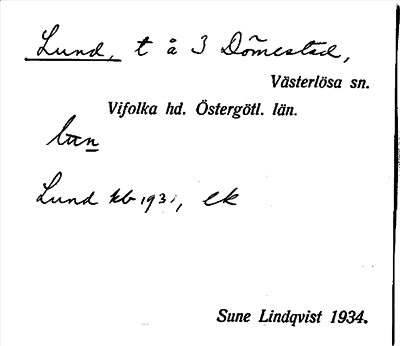 Lund, t å 3 Dömestad,
Västerlösa sn.
Vifolka hd. Östergötl. län.
Lund kb 1931, ek
Sune Lindqvist 1934.